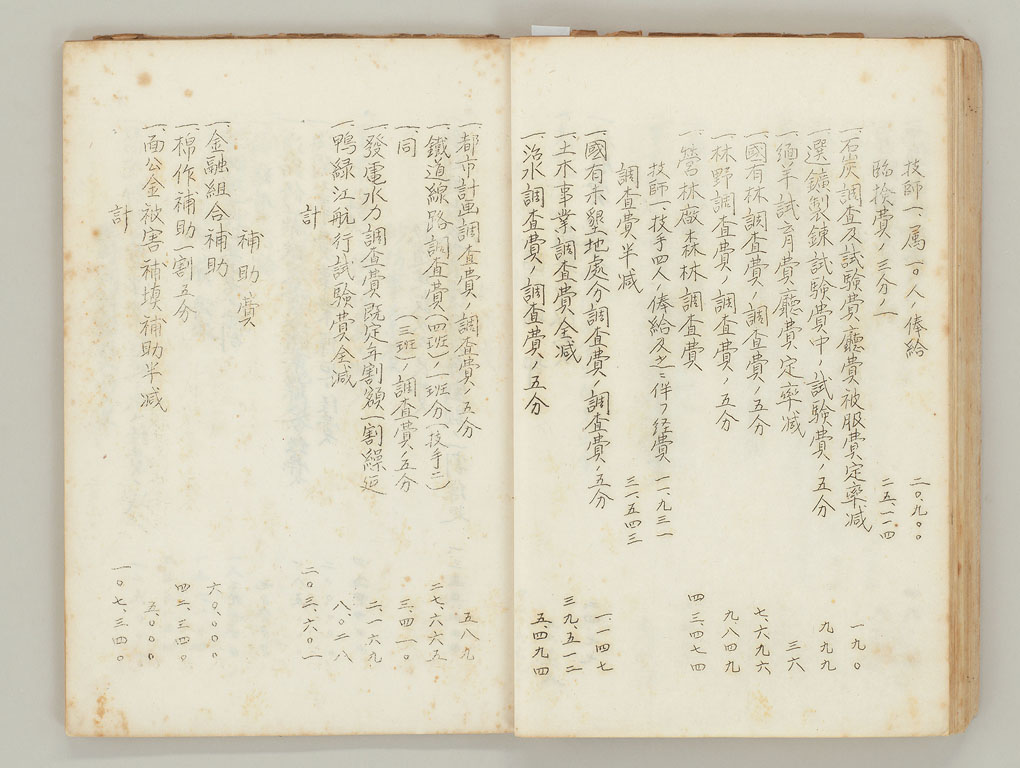 技師一、属一〇人ノ俸給 二〇、九〇〇
臨検費ノ三分ノ一 二五、一一四
一、石炭調査及試験費廳費被服費定率減 一九〇
一、選鑛製錬試験費中ノ試験費ノ五分 九九九
一、緬羊試育費廳費定率減 三六
一、國有林調査費ノ調査費ノ五分 七、六九六
一、林野調査費ノ調査費ノ五分 九八四九
一、營林廠森林調査費 四三、四七四
技師一、技手四人ノ俸給及之ニ伴フ経費 一一、九三一
調査費半減 三一、五四三
一、國有未墾地處分調査費ノ調査費ノ五分 一、一四七
一、土木事業調査費全減 三九、五一二
一、治水調査費ノ調査費ノ五分 五、四九四
一、都市計画調査費ノ調査費ノ五分 五八九
一、鐵道線路調査費(四班)ノ一班分(技手二) 二七、六六五
一、同 (三班)ノ調査費ノ五分 三、四一〇
一、發電水力調査費既定年割額ノ割繰延 二、一六九
一、鴨緑江航行試験費全減 八、〇二八
計 二〇三、六〇一
補助費
一、金融組合補助 六〇、〇〇〇
一、棉作補助一割五分 四二、三四〇
一、面公金被害補填補助半減 五、〇〇〇
計 一〇七、三四〇